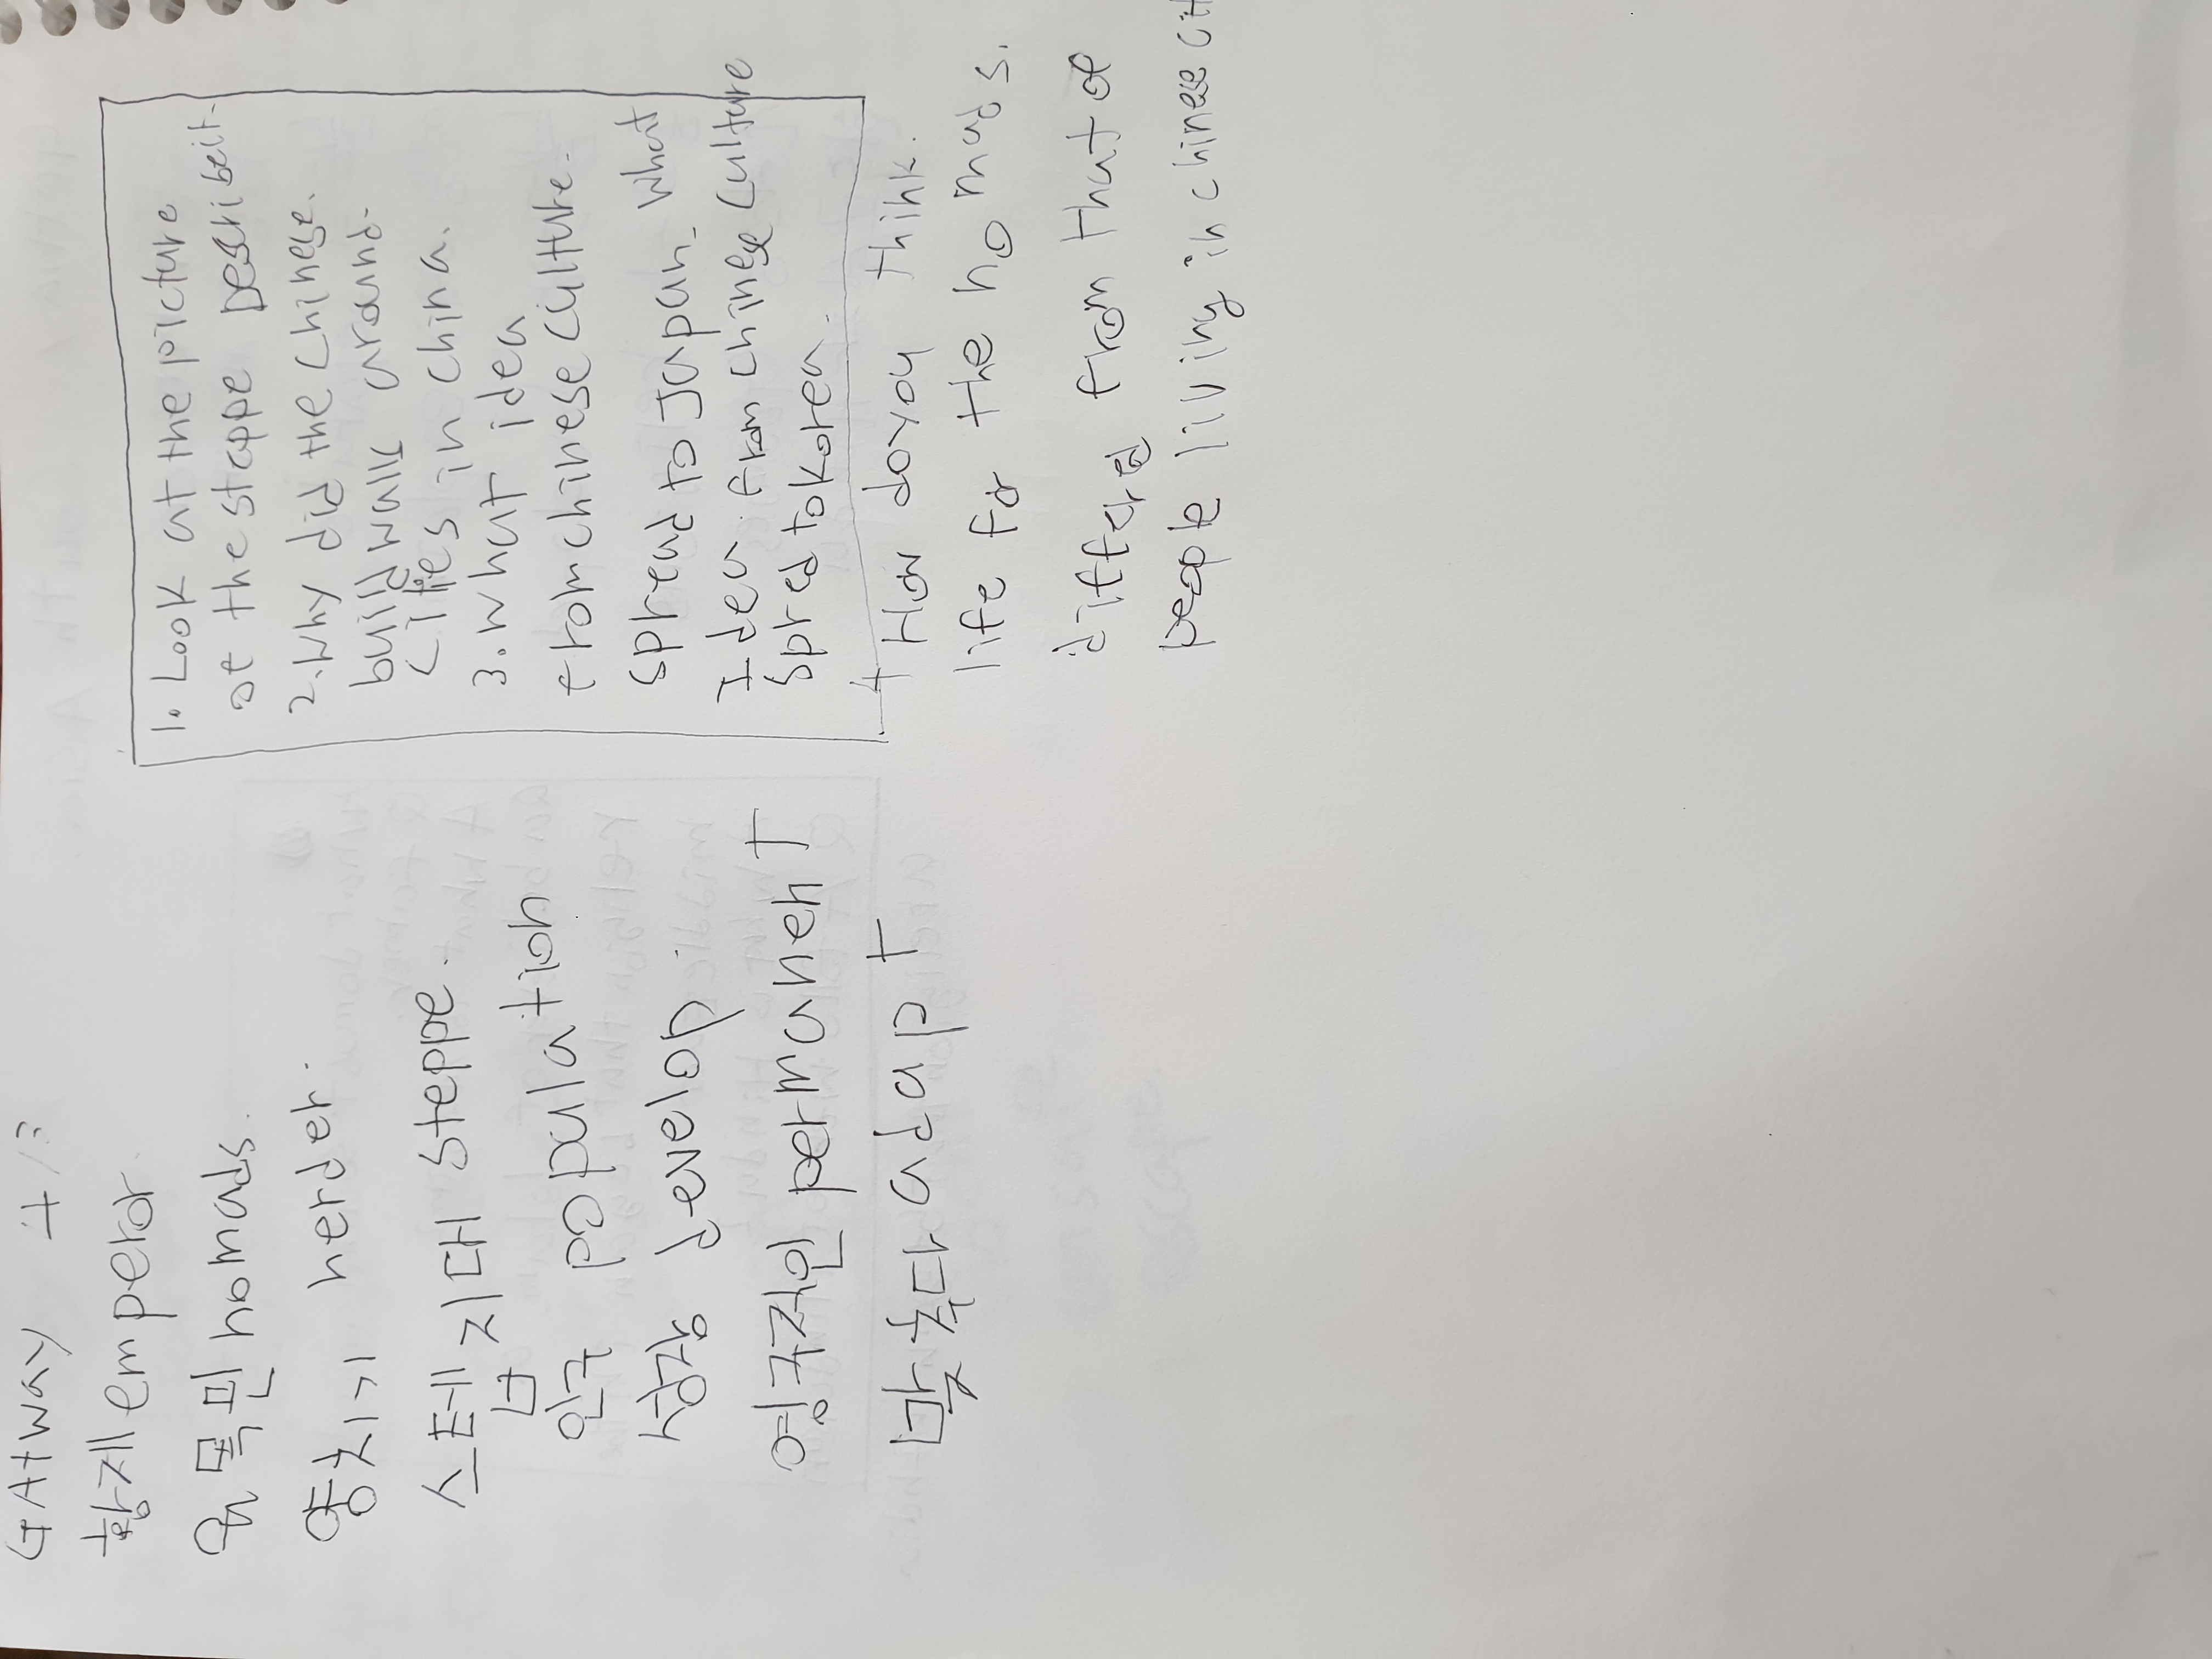 GAtway 4/3
황제 emperor.
유목민 nomads.
양치기 herder.
스텝 지대 steppe.
인구 population
성장 develop
영구적인 permanent
맞추다 adapt
1. Look at the picture
of the stappe Describeit.
2. Why did the chinese.
build walls around.
Cities in china.
3. what idea
from chinese culture.
spread to Japan. what
Idea. from chinese culture
spred to korea.
4 How doyou think.
life for the nomads.
differed from that of
people living in chinese cit